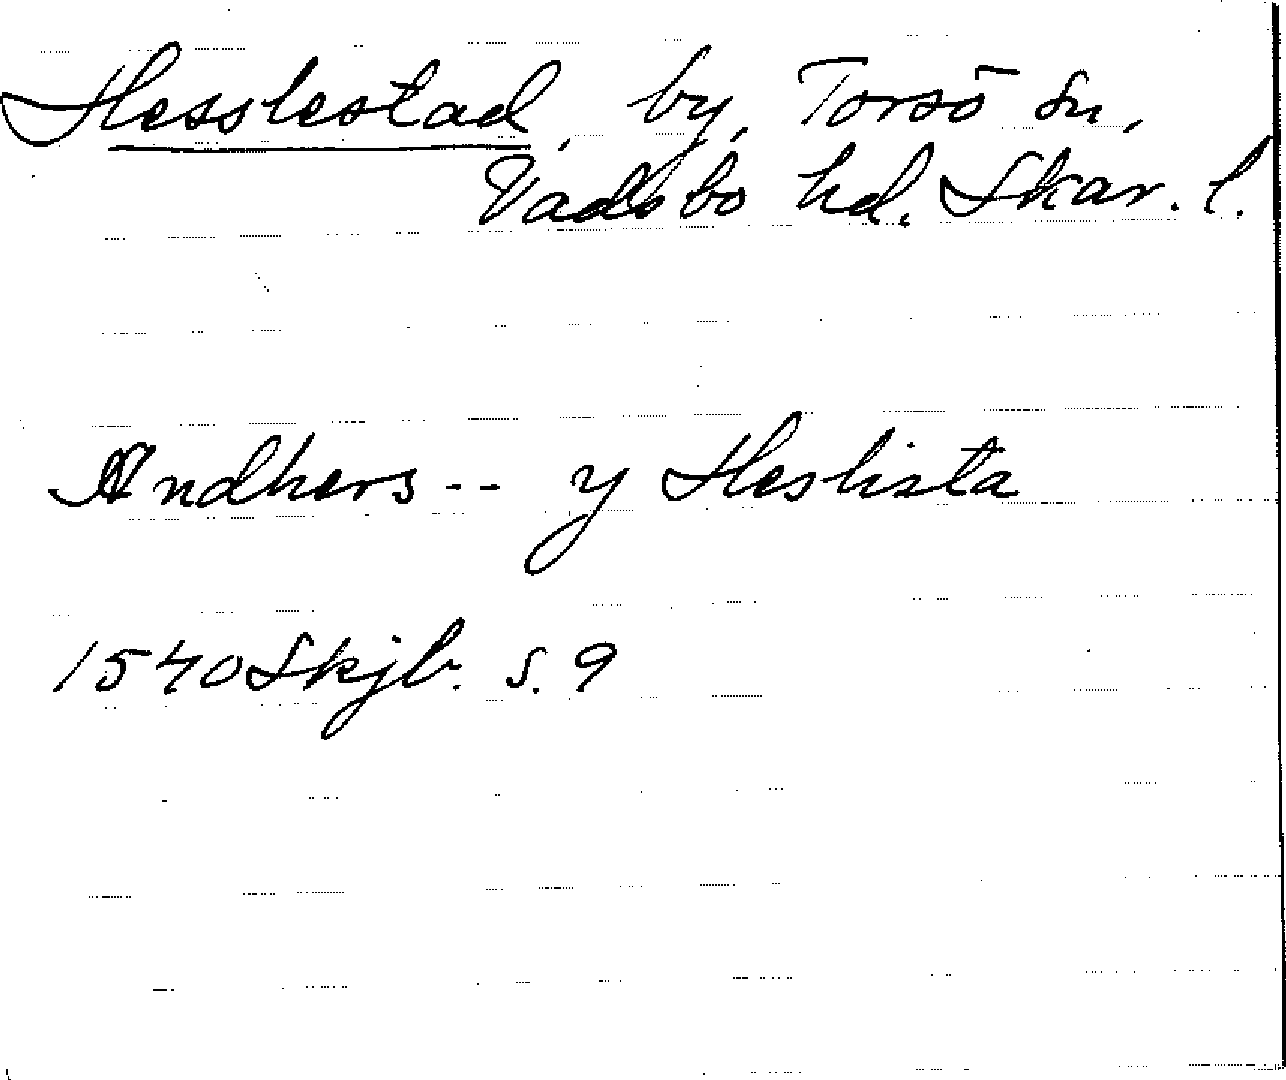 Hesslestad, by, Torsö sn,
Vadsbo hd. Skar. l.
Andhers -- y Heslista
1540 Skjb. s. 9